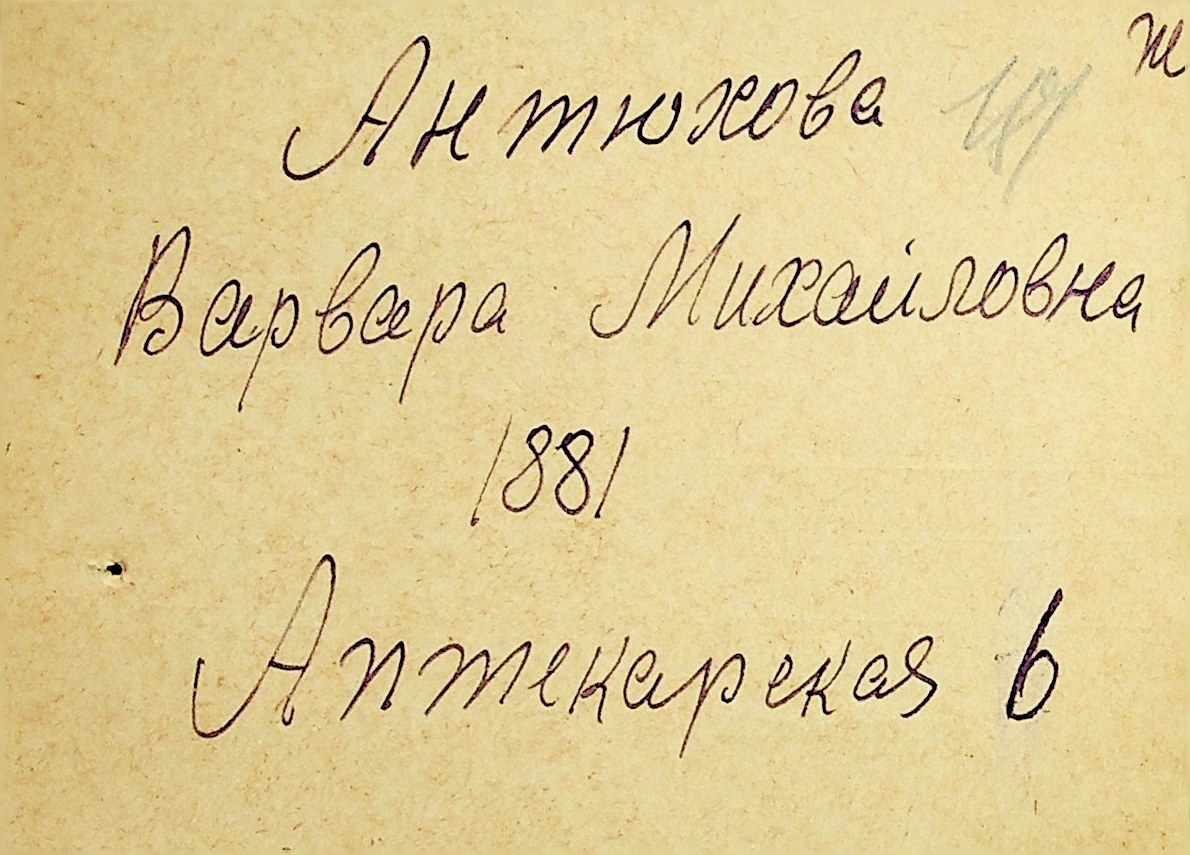 Антюхова
Варвара Михайловна
1881
Аптекарская 6